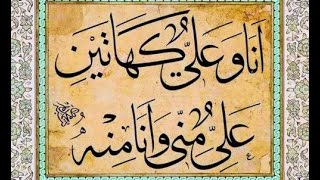 اَنَا وَ عَلِيٌّ كَهَاتَيْن
عَلِيٌّ مِنّي وَ اَنَا مِنْهُ